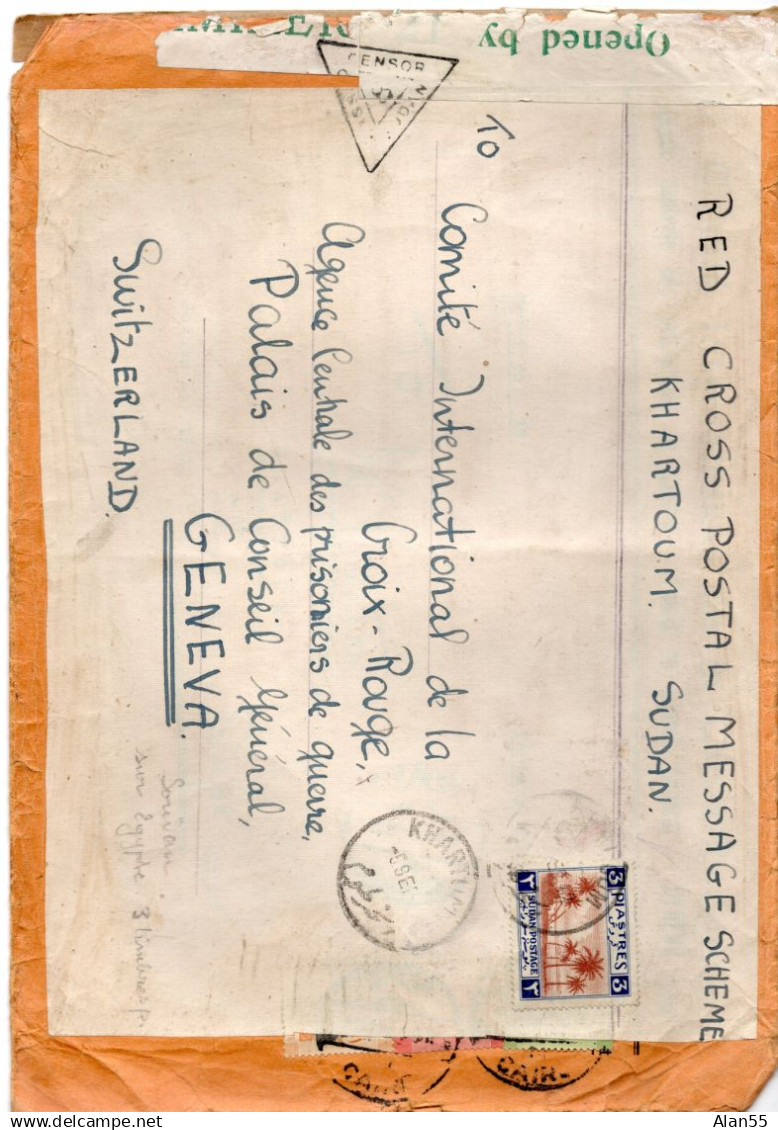 Opened by
CENSOR
RED CROSS POSTAL MESSAGE SCHEME
KHARTOUM. SUDAN.
To
Comité International de la
Croix-Rouge,
Agence Centrale des prisoniers de guerre,
Palais de Conseil Général,
GENEVA.
SWITZERLAND.
3 PIASTRES 3
٣ SUDAN POSTAGE ٣
KHARTUM
الخرطوم
Soudan
sur Egypte 3 timbres
CAIR
CAIR
Alan55